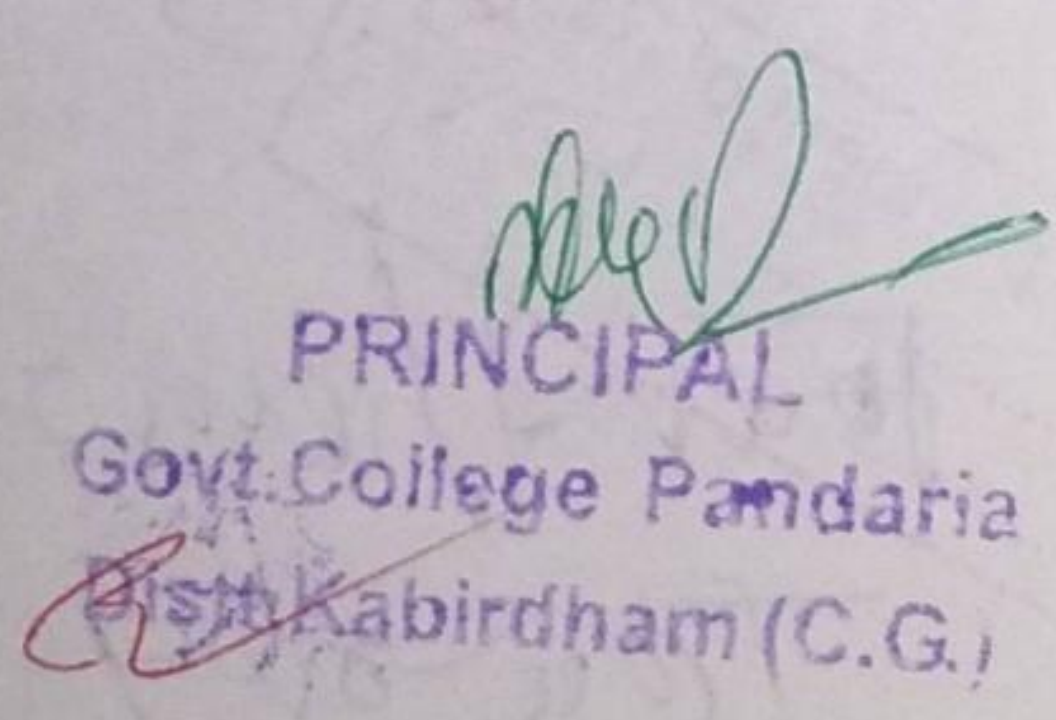 PRINCIPAL
Govt. College Pandaria
Distt. Kabirdham (C.G.)